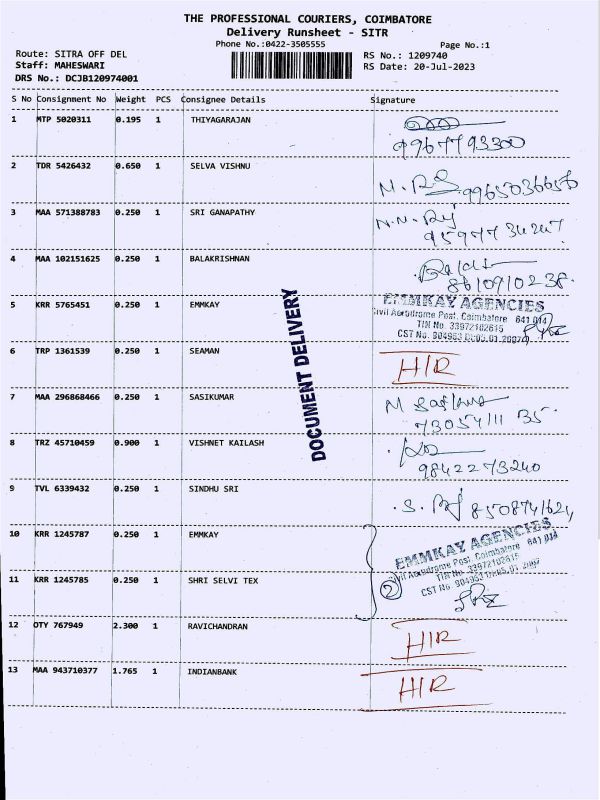 THE PROFESSIONAL COURIERS, COIMBATORE
Delivery Runsheet - SITR
Phone No.:0422-3505555 Page No.:1
Route: SITRA OFF DEL RS No.: 1209740
Staff: MAHESWARI RS Date: 20-Jul-2023
DRS No.: DCJB120974001
S No Consignment No Weight PCS Consignee Details Signature
1 MTP 5020311 0.195 1 THIYAGARAJAN
9967793300
2 TDR 5426432 0.650 1 SELVA VISHNU
9965036656
3 MAA 571388783 0.250 1 SRI GANAPATHY
9597734247
4 MAA 102151625 0.250 1 BALAKRISHNAN
8610910238
5 KRR 5765451 0.250 1 EMMKAY
EMMKAY AGENCIES
Civil Aerodrome Post, Coimbatore 641 014
TIN No. 33972102615
CST No. 904963 Dt:05.01.2007
6 TRP 1361539 0.250 1 SEAMAN H/R
DOCUMENT DELIVERY
7 MAA 296868466 0.250 1 SASIKUMAR
7305411135
8 TRZ 45710459 0.900 1 VISHNET KAILASH
9842273240
9 TVL 6339432 0.250 1 SINDHU SRI
8508741624
10 KRR 1245787 0.250 1 EMMKAY
EMMKAY AGENCIES
Civil Aerodrome Post, Coimbatore 641 014
TIN No. 33972102615
CST No. 904963 Dt:05.01.2007
11 KRR 1245785 0.250 1 SHRI SELVI TEX 2
12 OTY 767949 2.300 1 RAVICHANDRAN H/R
13 MAA 943710377 1.765 1 INDIANBANK H/R